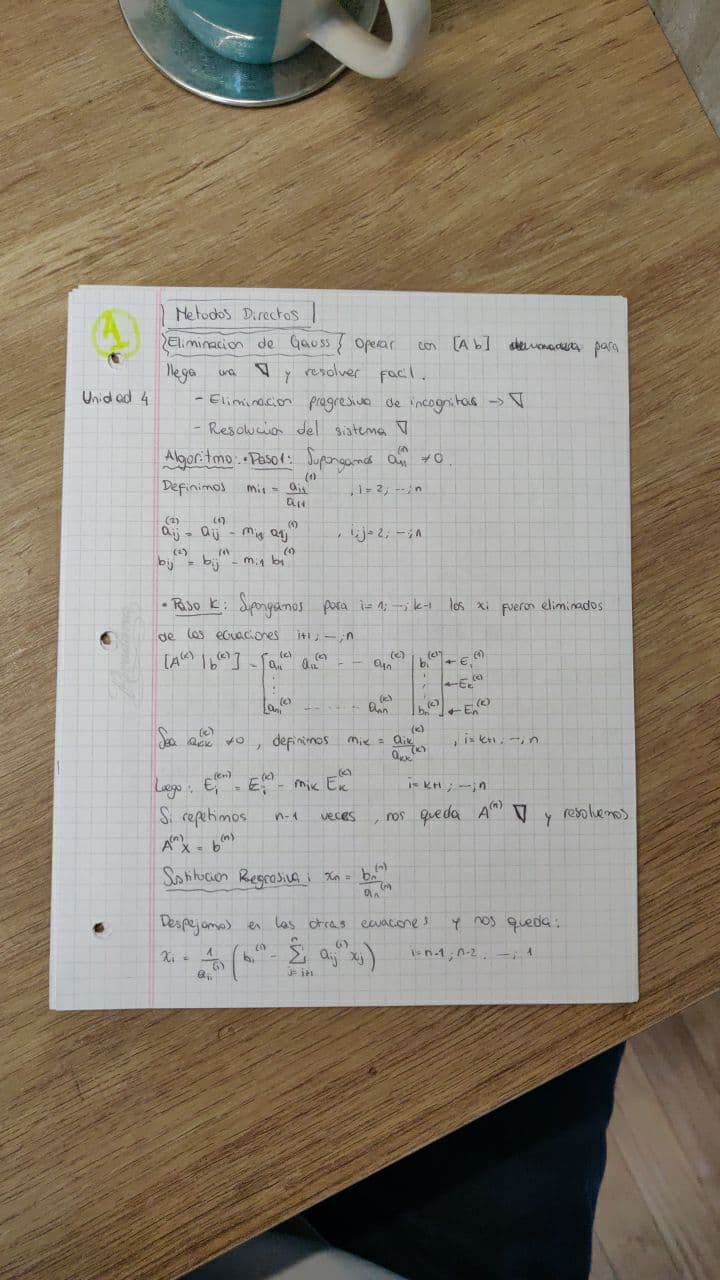 1
Metodos Directos
Eliminacion de Gauss Operar con [A b] para
llega una ∇ y resolver facil.
Unidad 4
- Eliminacion progresiva de incognitas → ∇
- Resolucion del sistema ∇
Algoritmo: • Paso 1: Supongamos a₁₁⁽¹⁾ ≠ 0.
Definimos mi1 = ai1⁽¹⁾ / a11 , i = 2, --; n
aij⁽²⁾ = aij⁽¹⁾ - mi1 a1j⁽¹⁾ , i,j = 2, -; n
bij⁽²⁾ = bij⁽¹⁾ - mi1 b1⁽¹⁾
• Paso K: Supongamos para i = 1; -; k-1 los xi fueron eliminados
de las ecuaciones i+1; -; n
[A⁽ᴷ⁾ | b⁽ᴷ⁾] = [a11⁽ᴷ⁾ a12⁽ᴷ⁾ - - a1n⁽ᴷ⁾ | b1⁽ᴷ⁾] ← E1⁽¹⁾
⋮ ⋮ ← EK⁽ᴷ⁾
an1⁽ᴷ⁾ - - - - ann⁽ᴷ⁾ | bn⁽ᴷ⁾] ← En⁽ᴷ⁾
Sea aKK⁽ᴷ⁾ ≠ 0, definimos miK = aiK⁽ᴷ⁾ / aKK⁽ᴷ⁾ , i = K+1; -; n
Luego: Ei⁽ᴷ⁺¹⁾ = Ei⁽ᴷ⁾ - miK EK⁽ᴷ⁾ i = K+1; -; n
Si repetimos n-1 veces, nos queda A⁽ⁿ⁾ ∇ y resolvemos
A⁽ⁿ⁾x = b⁽ⁿ⁾
Sustitucion Regresiva: xn = bn⁽ⁿ⁾ / an⁽ⁿ⁾
Despejamos en las otras ecuaciones y nos queda:
xi = 1 / aii⁽ⁱ⁾ (bi⁽ⁱ⁾ - Σ j=i+1 n aij⁽ⁱ⁾ xj) i = n-1, n-2, -; 1